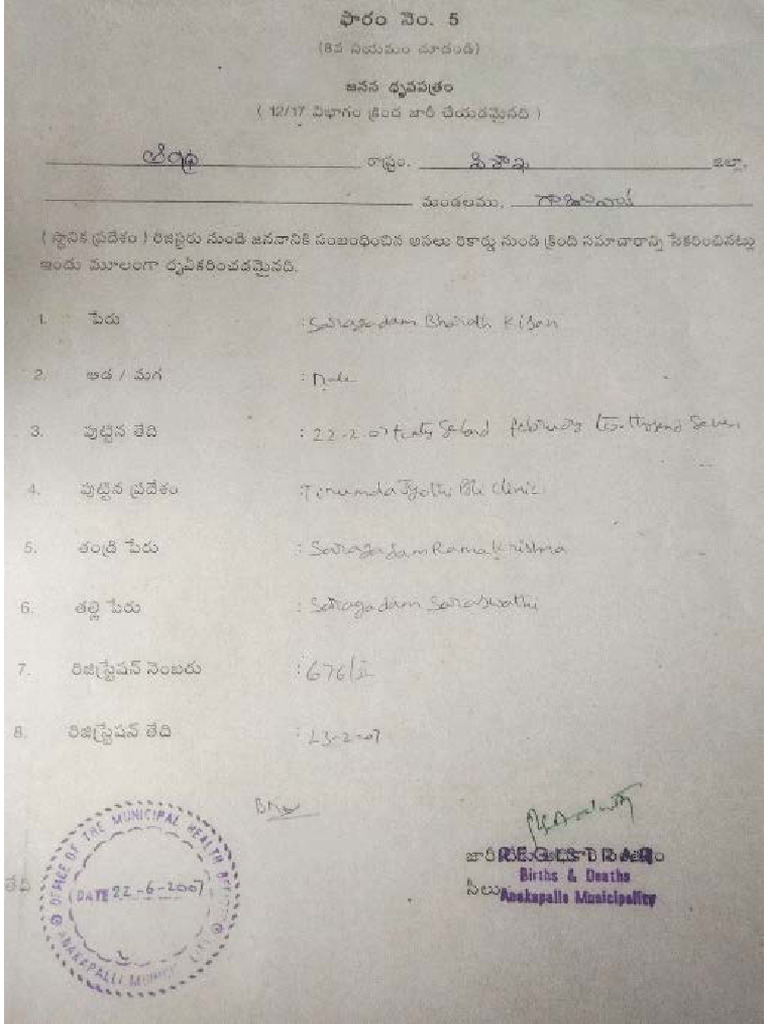 ఫారం నెం. 5
(8వ నియమం చూడండి)
జనన ధృవపత్రం
( 12/17 విభాగం క్రింద జారీ చేయడమైనది )
ఆంధ్ర రాష్ట్రం. విశాఖ జిల్లా,
మండలము,
( స్థానిక ప్రదేశం ) రిజిస్టరు నుండి జననానికి సంబంధించిన అసలు రికార్డు నుండి క్రింది సమాచారాన్ని సేకరించినట్లు
ఇందు మూలంగా ధృవీకరించడమైనది.
1. పేరు : Saragadam Bharath Kishan
2. ఆడ / మగ : Male
3. పుట్టిన తేది : 22-2-07 February Seven
4. పుట్టిన ప్రదేశం : Clinic
5. తండ్రి పేరు : Saragadam Rama Krishna
6. తల్లి పేరు : Saragadam Saraswathi
7. రిజిస్ట్రేషన్ నెంబరు : 676/II
8. రిజిస్ట్రేషన్ తేది : 23-2-07
OFFICE OF THE MUNICIPAL HEALTH OFFICER
తేది
DATE 22-6-2007
ANAKAPALLI
REGISTRAR
Births & Deaths
సీలు
Anakapalle Municipality